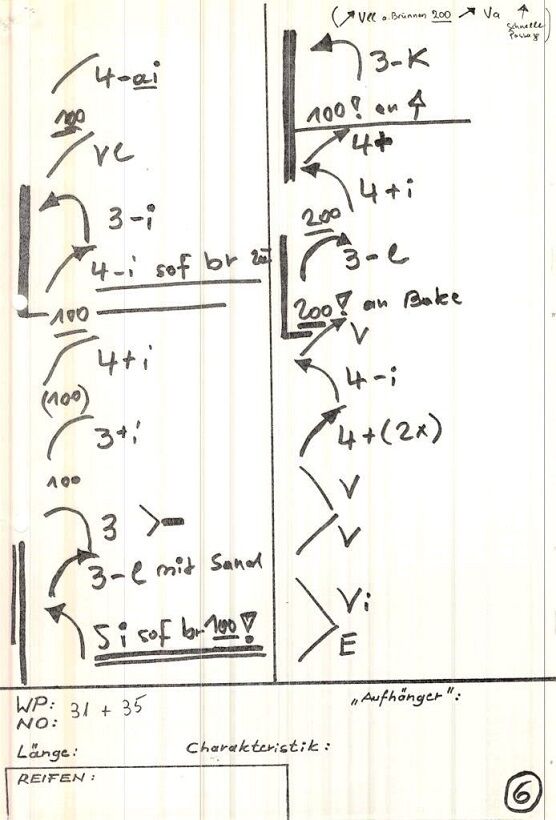 4-ai
100
vl
3-i
4-i sof br zu
100
4+i
(100)
3+i
100
3 >-
3-l mit Sand
5i sof br 100!
(↗ Vll o. Brunnen 200 ↗ Va ↑
Schnelle
Passage)
3-K
100! an
4+
4+i
200
3-l
200! an Bake
V
4-i
4+(2x)
V
V
Vi
E
WP: 31 + 35
NO:
Länge:
Charakteristik:
„Aufhänger":
REIFEN:
6